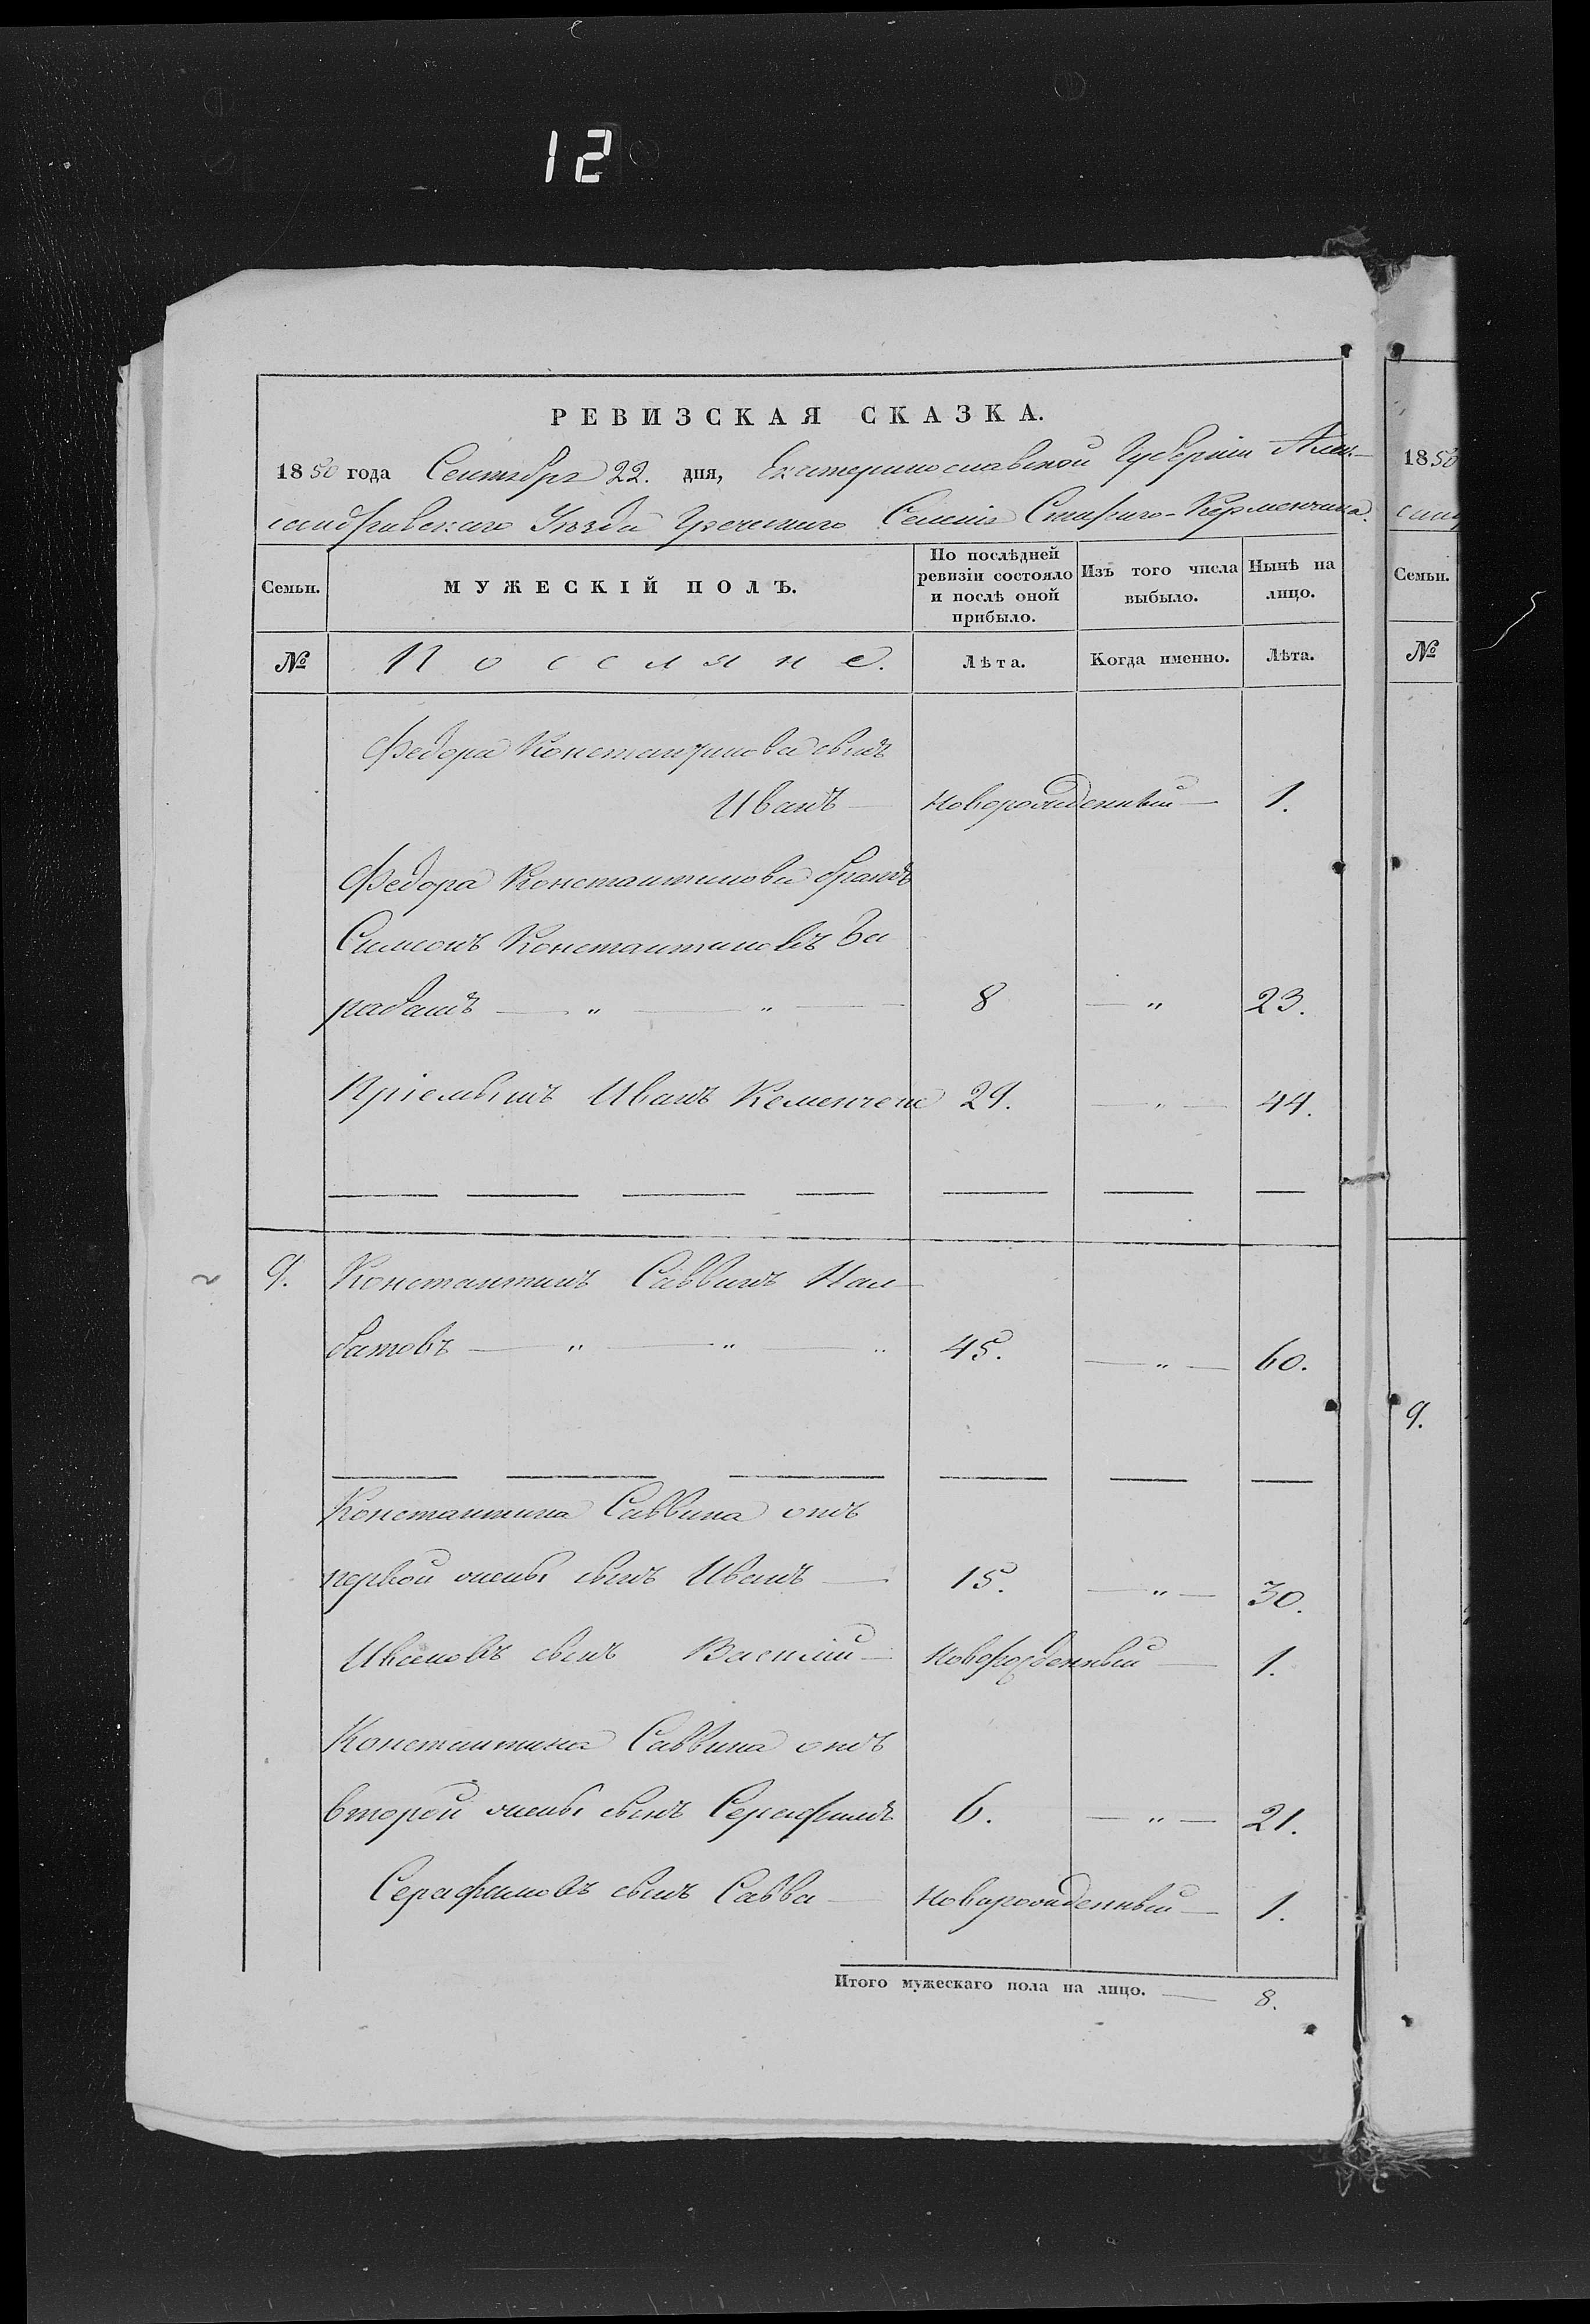 12
РЕВИЗСКАЯ СКАЗКА.
1850 года Сентября 22. дня, Екатеринославской Губерніи Алек-
сандровскаго Уѣзда Греческаго Селенія Стараго-Керменчика.
Семьи.
МУЖЕСКІЙ ПОЛЪ.
По послѣдней ревизіи состояло и послѣ оной прибыло.
Изъ того числа выбыло.
Нынѣ на лицо.
№
Поселяне.
Лѣта.
Когда именно.
Лѣта.
Федора Константинова сынъ
Иванъ — Новорожденный — 1.
Федора Константинова братъ
Симеонъ Константиновъ
8 — „ 23.
Пріемышъ Иванъ 29. — „ — 44.
9. Константинъ Саввинъ
батовъ — „ — „ „ 45. — „ — 60.
Константина Саввина отъ
первой жены сынъ Иванъ — 15. — „ — 30.
Ивановъ сынъ Василій — Новорожденный — 1.
Константина Саввина отъ
второй жены сынъ Серафимъ 6. — „ — 21.
Серафимовъ сынъ Савва — Новорожденный — 1.
Итого мужескаго пола на лицо. — 8.
1850
Семьи.
№
9.